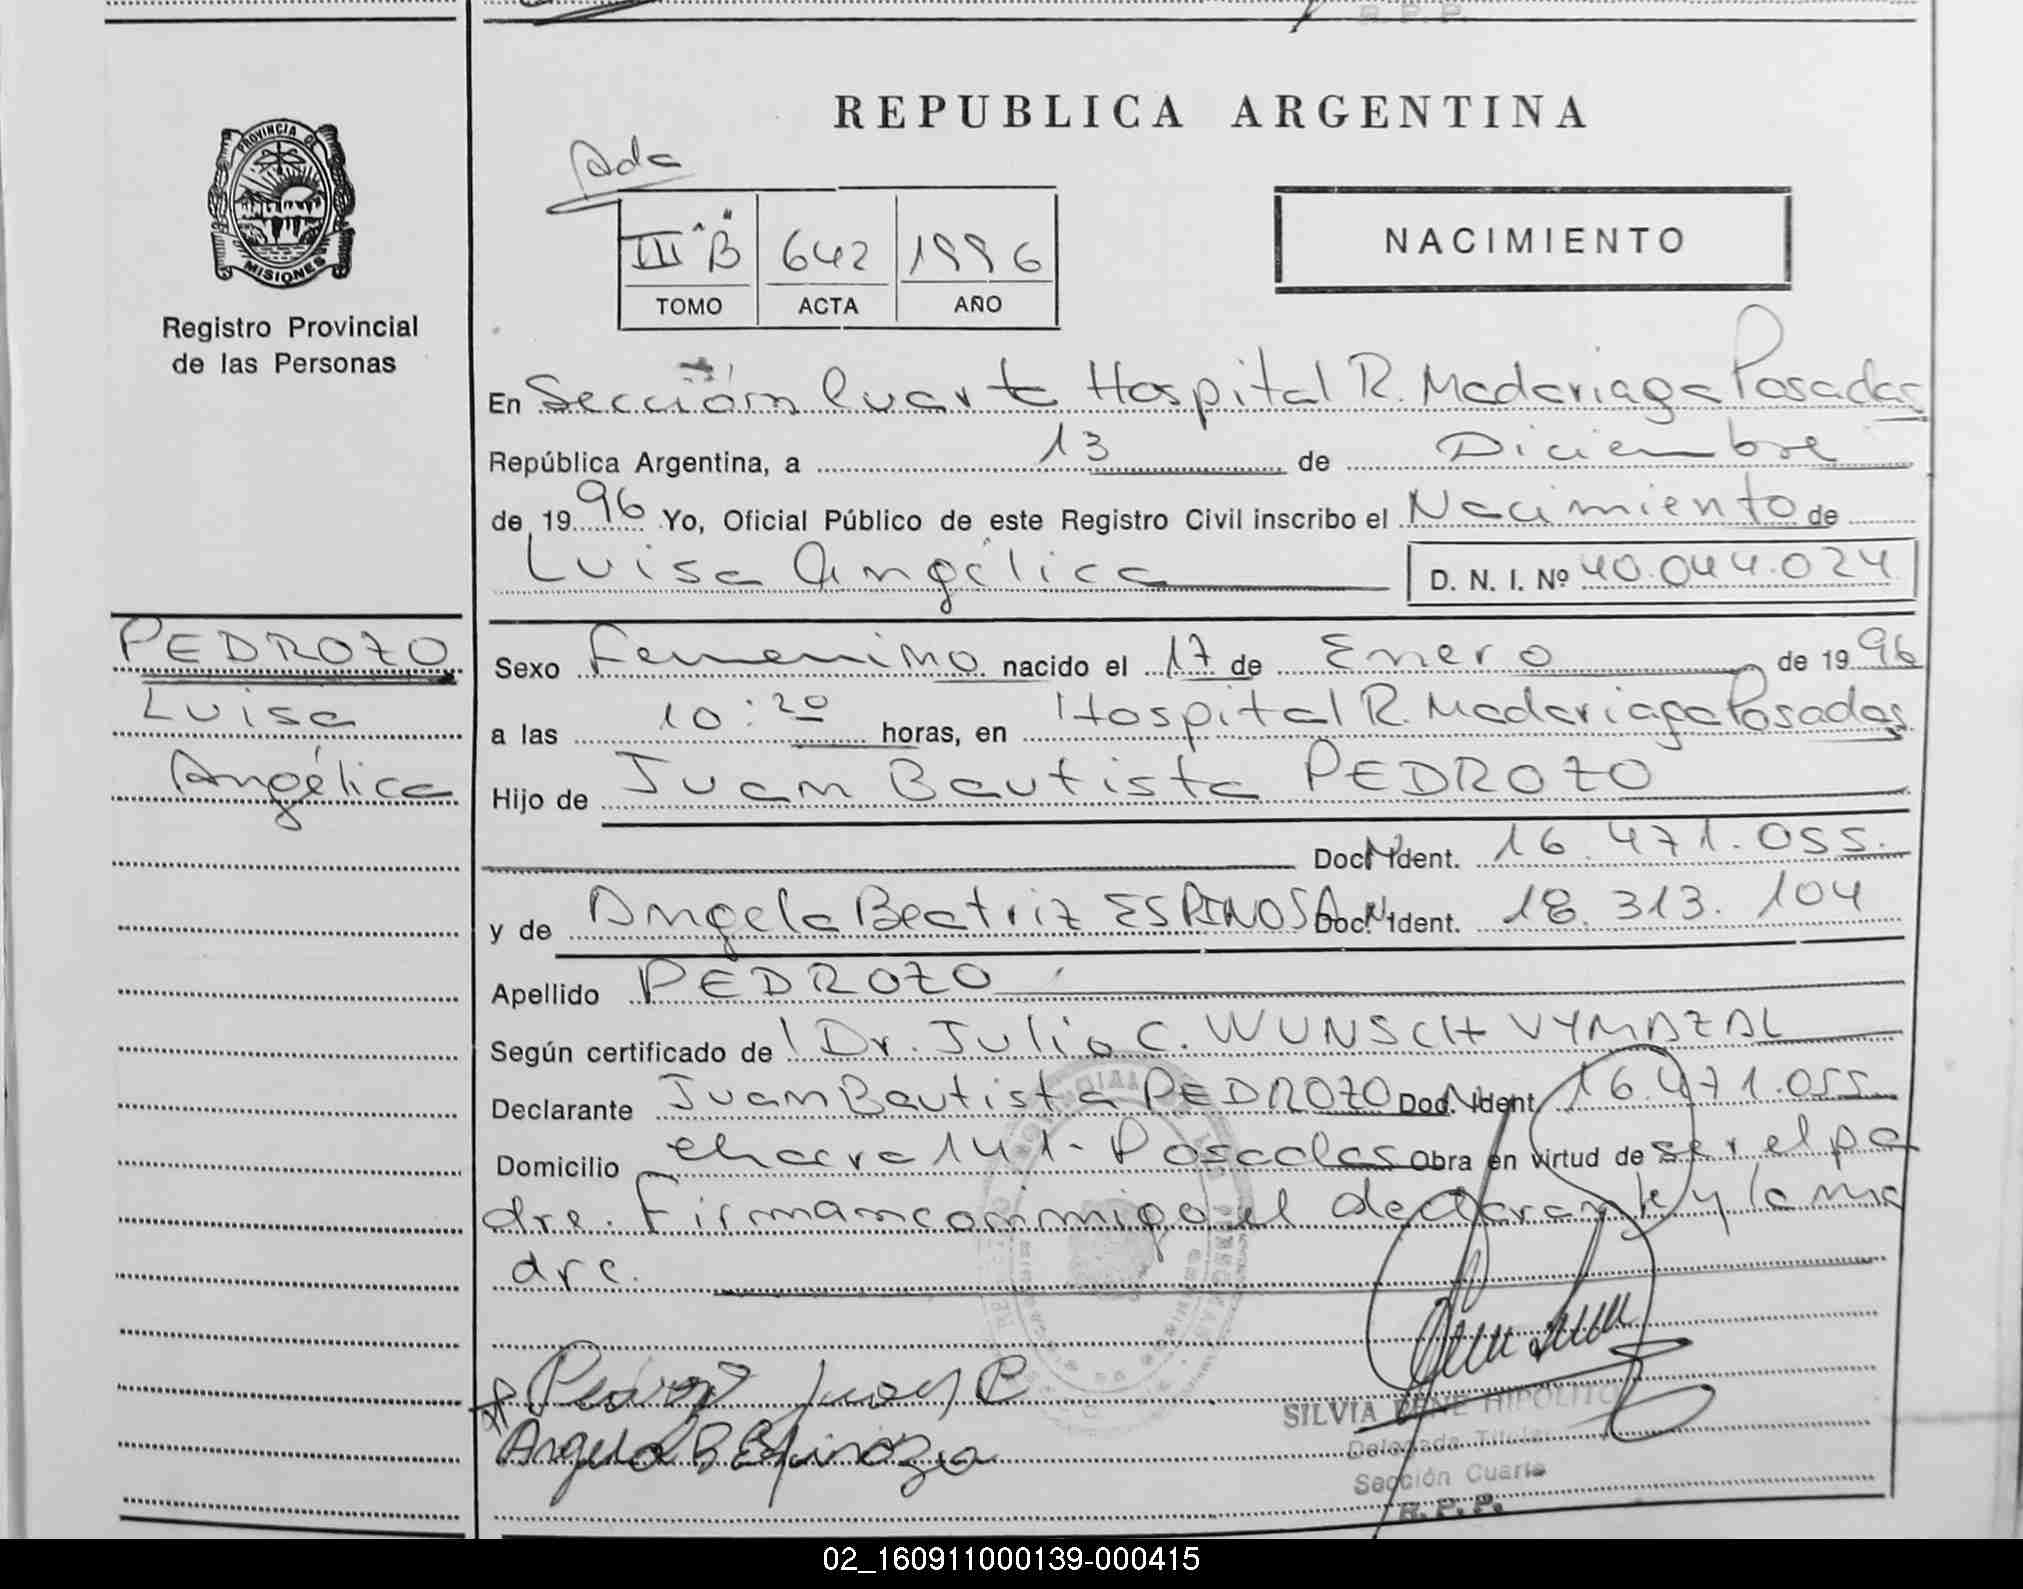 REPUBLICA ARGENTINA
PROVINCIA DE
MISIONES
Registro Provincial
de las Personas
Ada
III "B" 642 1996
TOMO ACTA AÑO
NACIMIENTO
En Sección Cuarta Hospital R. Madariaga Posadas
República Argentina, a 13 de Diciembre
de 1996 Yo, Oficial Público de este Registro Civil inscribo el Nacimiento de
Luisa Angélica D. N. I. Nº 40.044.024
PEDROZO
Luisa
Angélica
Sexo Femenino nacido el 17 de Enero de 1996
a las 10:20 horas, en Hospital R. Madariaga Posadas
Hijo de Juan Bautista PEDROZO
Doc. Ident. 16.471.055.
y de Angela Beatriz ESPINOSA Doc. Ident. 18.313.104
Apellido PEDROZO
Según certificado de Dr. Julio C. WUNSCH VYMAZAL
Declarante Juan Bautista PEDROZO Doc. Ident 16.471.055
Domicilio chacra 141- Posadas Obra en virtud de ser el pa
dre. Firman conmigo el declarante y la ma
dre.
Angela B Espinoza
SILVIA RENE HIPOLITO
Delegada Titular
Sección Cuarta
R. P. P.
02_160911000139-000415